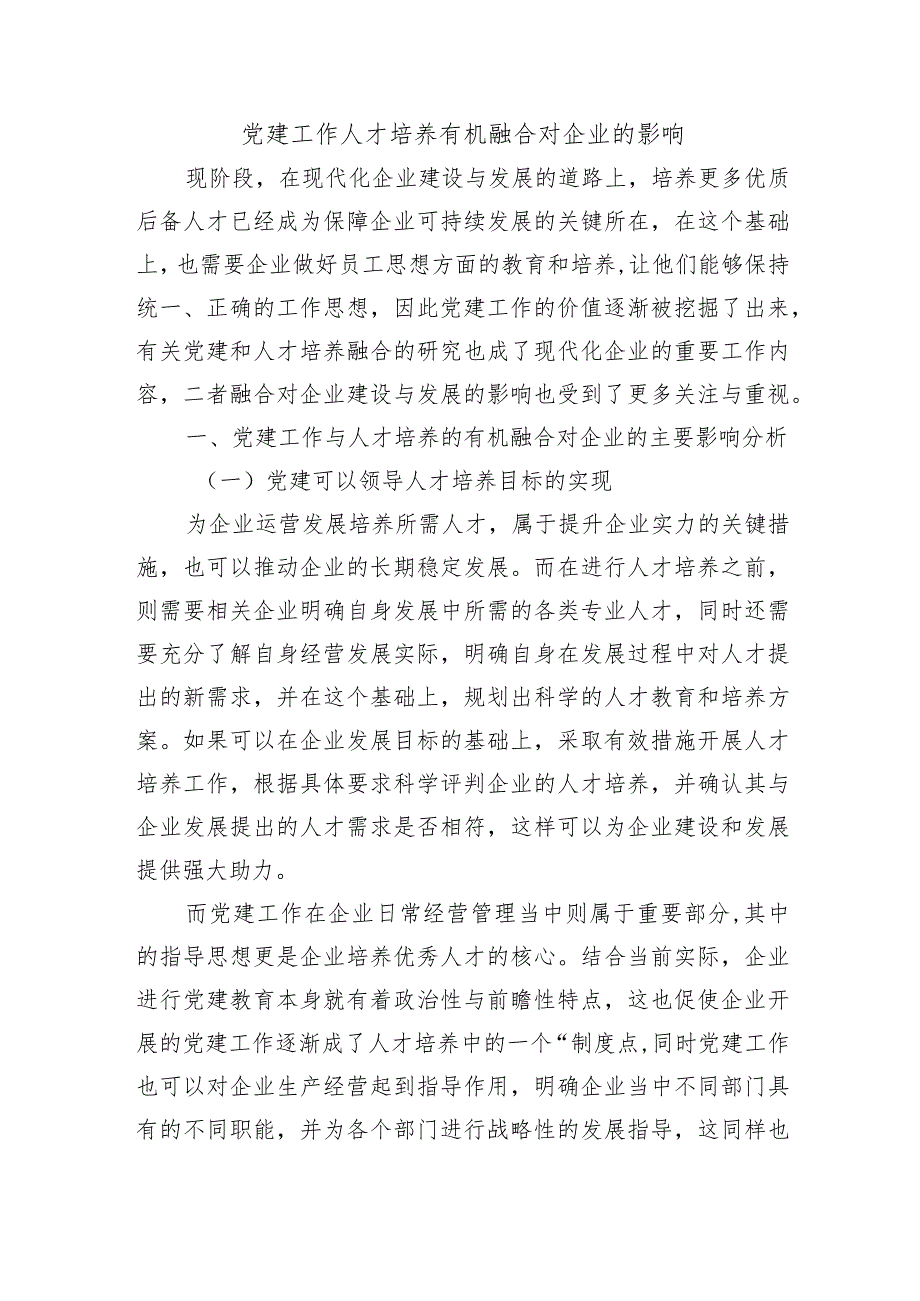 党建工作人才培养有机融合对企业的影响
现阶段，在现代化企业建设与发展的道路上，培养更多优质
后备人才已经成为保障企业可持续发展的关键所在，在这个基础
上，也需要企业做好员工思想方面的教育和培养,让他们能够保持
统一、正确的工作思想，因此党建工作的价值逐渐被挖掘了出来，
有关党建和人才培养融合的研究也成了现代化企业的重要工作内
容，二者融合对企业建设与发展的影响也受到了更多关注与重视。
一、党建工作与人才培养的有机融合对企业的主要影响分析
（一）党建可以领导人才培养目标的实现
为企业运营发展培养所需人才，属于提升企业实力的关键措
施，也可以推动企业的长期稳定发展。而在进行人才培养之前，
则需要相关企业明确自身发展中所需的各类专业人才，同时还需
要充分了解自身经营发展实际，明确自身在发展过程中对人才提
出的新需求，并在这个基础上，规划出科学的人才教育和培养方
案。如果可以在企业发展目标的基础上，采取有效措施开展人才
培养工作，根据具体要求科学评判企业的人才培养，并确认其与
企业发展提出的人才需求是否相符，这样可以为企业建设和发展
提供强大助力。
而党建工作在企业日常经营管理当中则属于重要部分,其中
的指导思想更是企业培养优秀人才的核心。结合当前实际，企业
进行党建教育本身就有着政治性与前瞻性特点，这也促使企业开
展的党建工作逐渐成了人才培养中的一个“制度点,同时党建工作
也可以对企业生产经营起到指导作用，明确企业当中不同部门具
有的不同职能，并为各个部门进行战略性的发展指导，这同样也